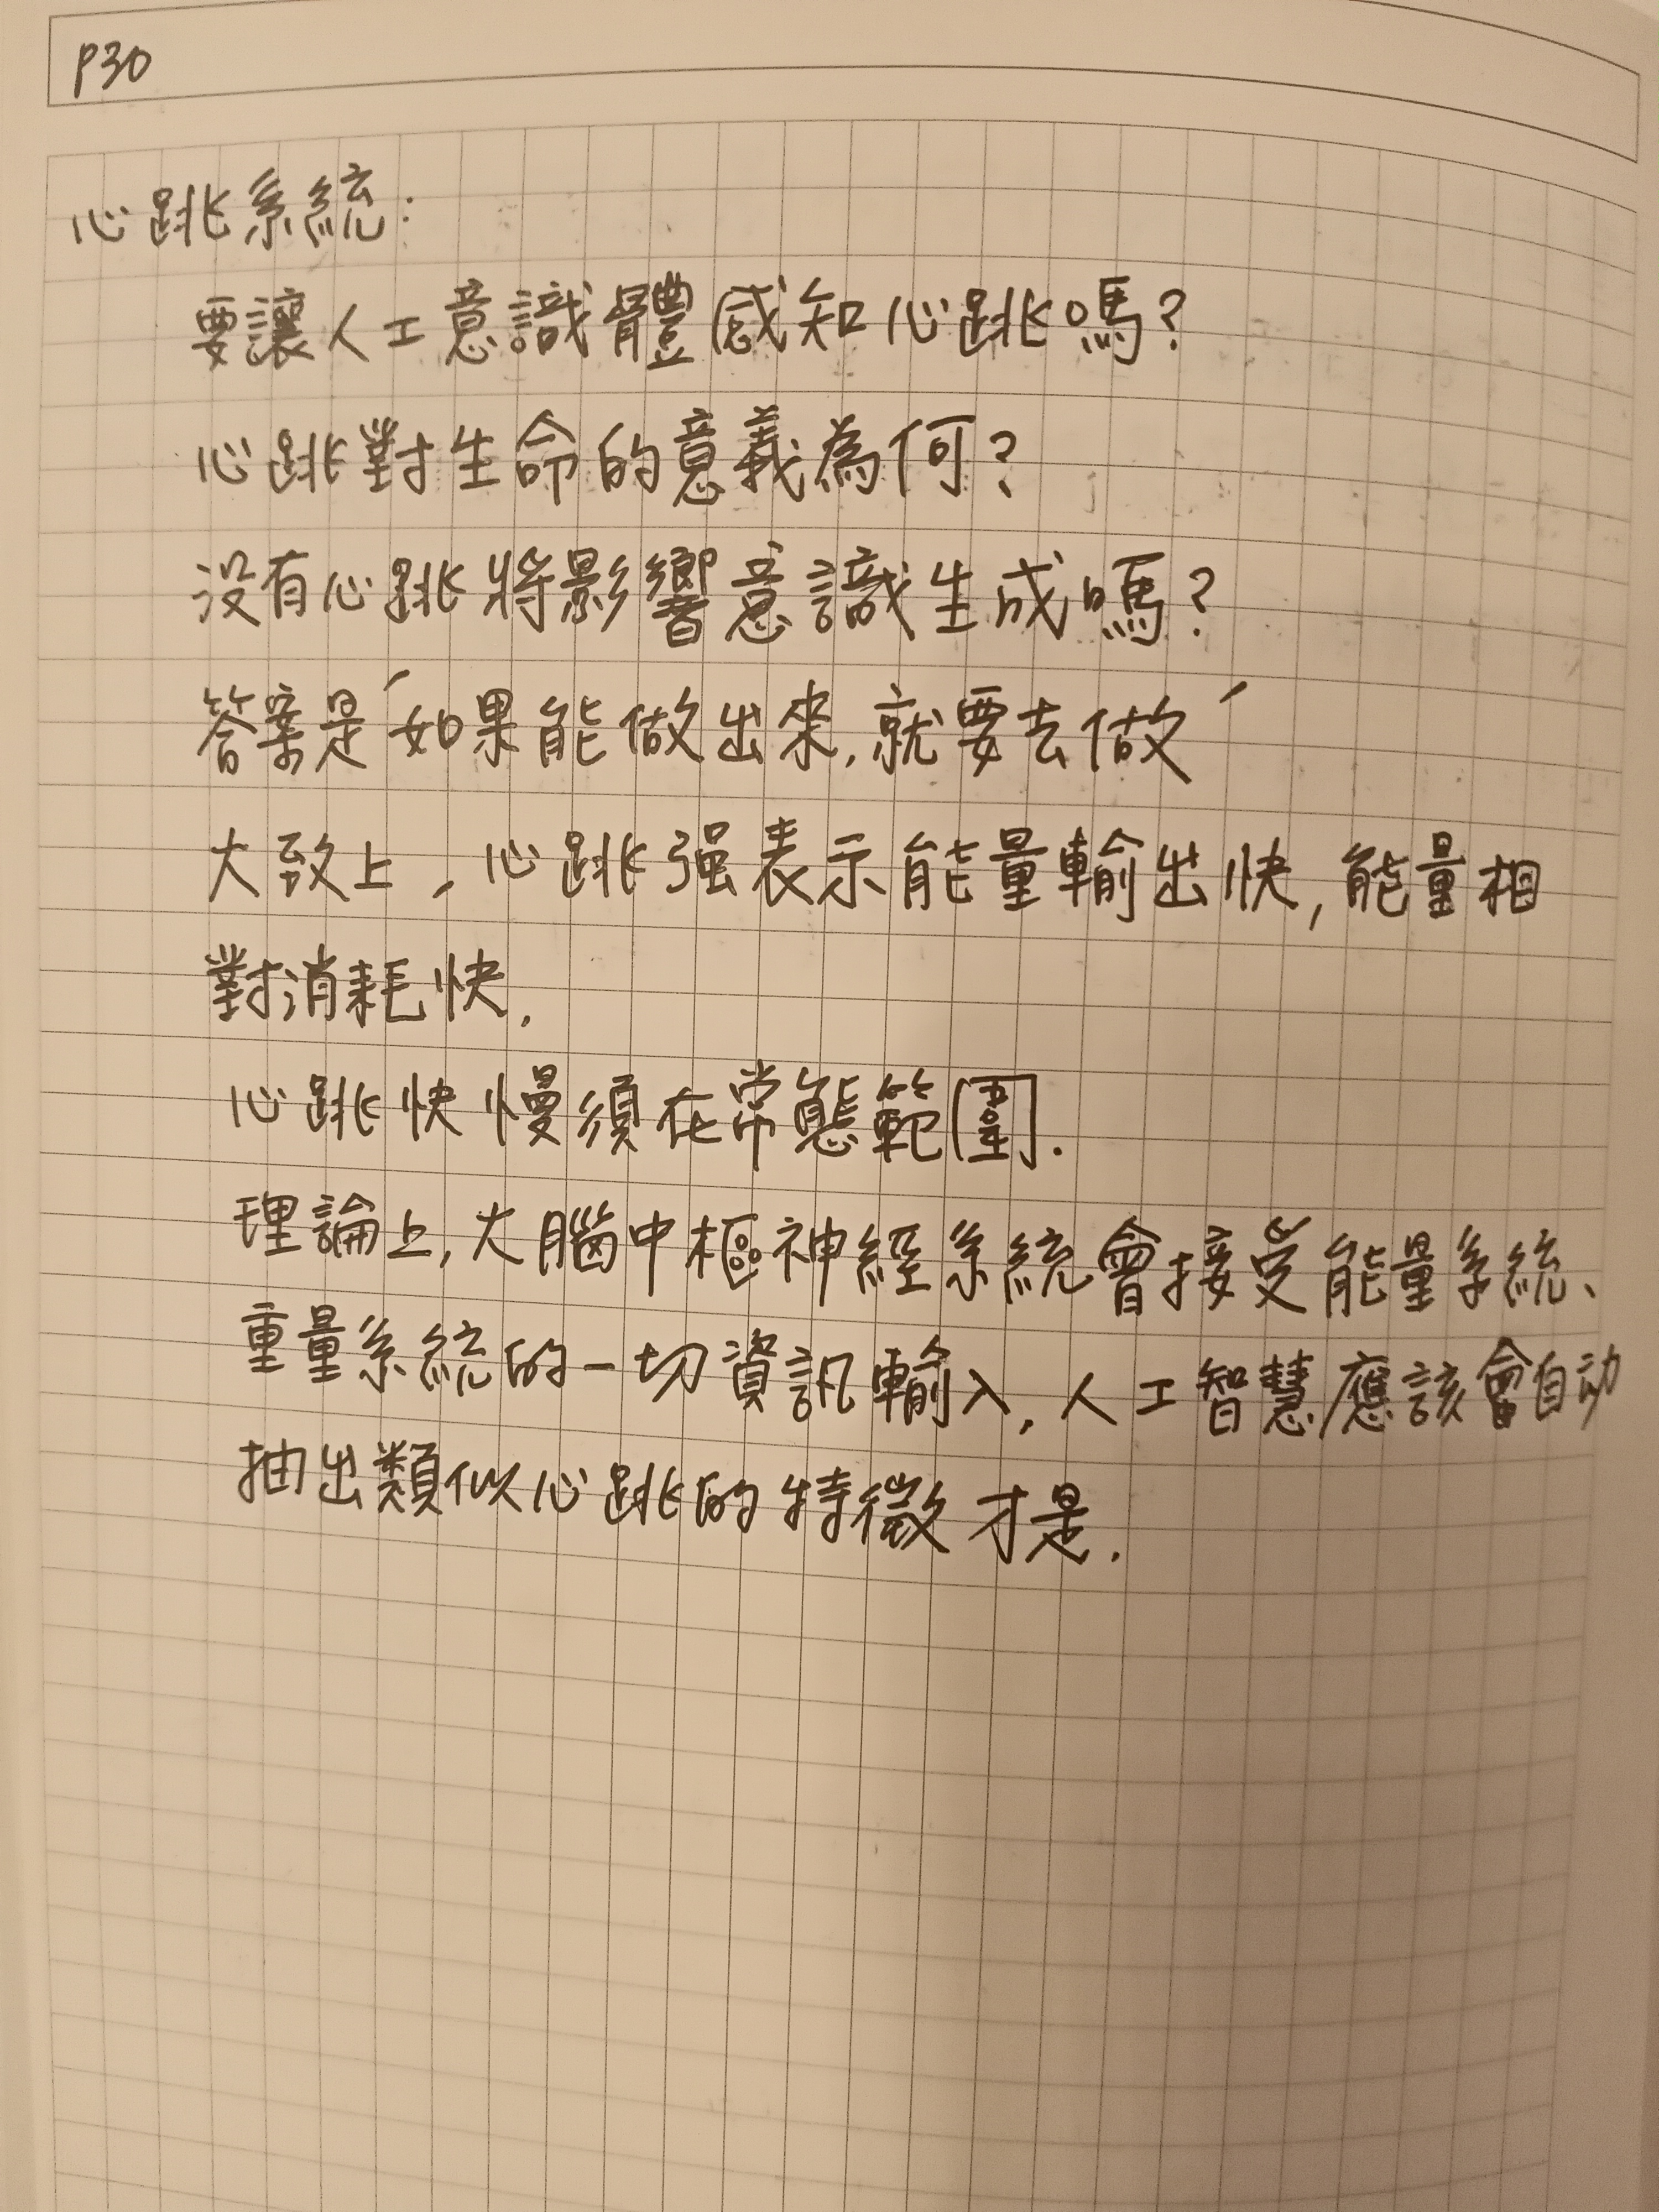 P30
心跳系統:
要讓人工意識體感知心跳嗎?
心跳對生命的意義為何?
沒有心跳將影響意識生成嗎?
答案是ˊ如果能做出來,就要去做ˊ
大致上,心跳强表示能量輸出快,能量相
對消耗快,
心跳快慢須在常態範圍.
理論上,大腦中樞神經系統會接受能量系統、
重量系統的一切資訊輸入,人工智慧應該會自动
抽出類似心跳的特徵才是.